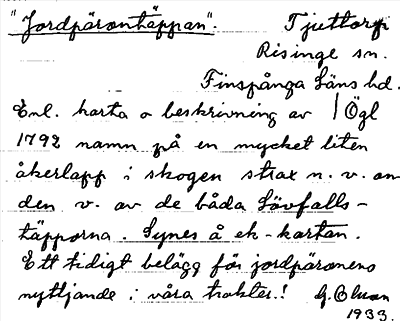 "Jordpärontäppan".
Tjuttorp
Risinge sn.
Finspånga Läns hd.
Enl. karta o beskrivning av | Ögl
1792 namn på en mycket liten
åkerlapp i skogen strax n. v. om
den v. av de båda Lövfalls-
täpporna. Synes å ek-kartan.
Ett tidigt belägg för jordpäronens
nyttjande i våra trakter.! G. Olsson
1933.